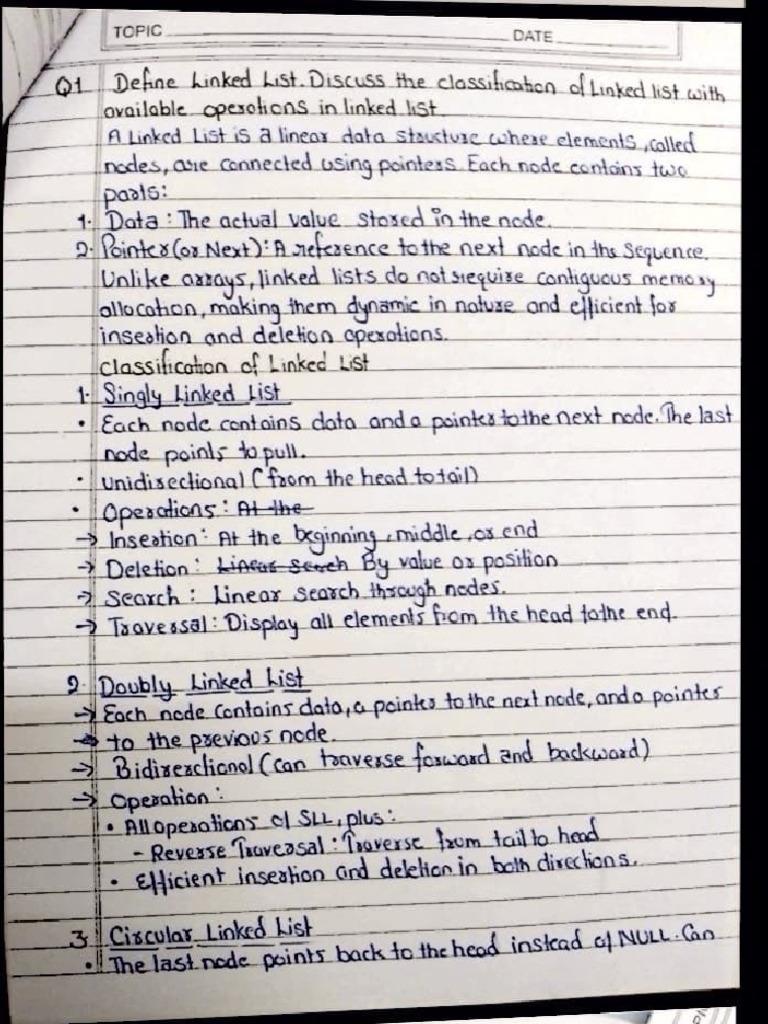 TOPIC DATE
Q1 Define Linked List. Discuss the classification of Linked list with
available operations in linked list.
A Linked List is a linear data structure where elements, called
nodes, are connected using pointers. Each node contains two
parts:
1. Data : The actual value stored in the node.
2. Pointer (or Next) : A reference to the next node in the sequence.
Unlike arrays, linked lists do not require contiguous memory
allocation, making them dynamic in nature and efficient for
insertion and deletion operations.
classification of Linked List
1. Singly Linked List
• Each node contains data and a pointer to the next node. The last
node points to pull.
• unidirectional (from the head to tail)
• Operations : At the
→ Insertion : At the beginning, middle, or end
→ Deletion : Linear serch By value or position
→ Search : Linear search through nodes.
→ Traversal : Display all elements from the head to the end.
2. Doubly Linked List
→ Each node contains data, a pointer to the next node, and a pointer
→ to the previous node.
→ Bidirerctional (can traverse forward and backward)
→ Operation :
• All operations of SLL, plus :
- Reverse Traversal : Traverse from tail to head
• Efficient insertion and deletion in both directions.
3. Circular Linked List
• The last node points back to the head instead of NULL. Can